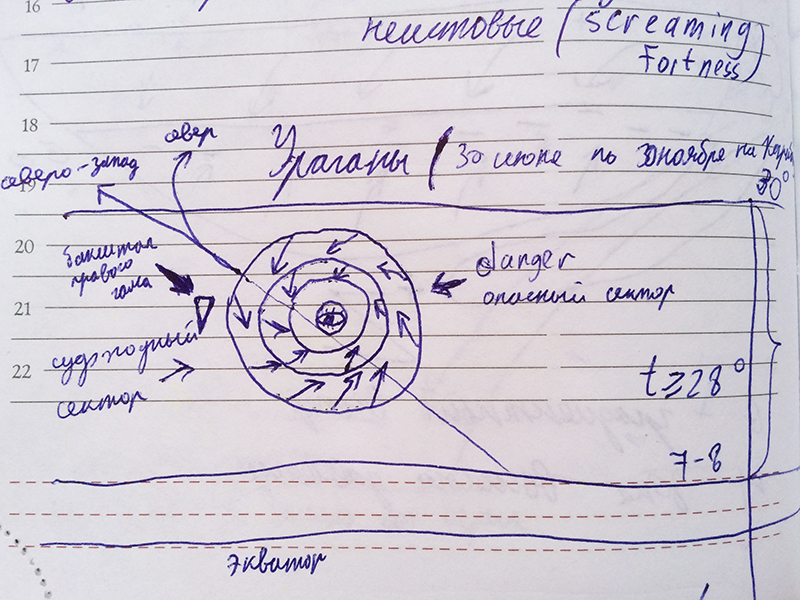 16
неистовые (Screaming
17
Fortness)
18
север
Ураганы (
по
на
северо-запад
30°
19
20
бакштаг
правого
галса
danger
опасный сектор
21
судоходный
сектор
22
t ⩾ 28°
7-8
экватор